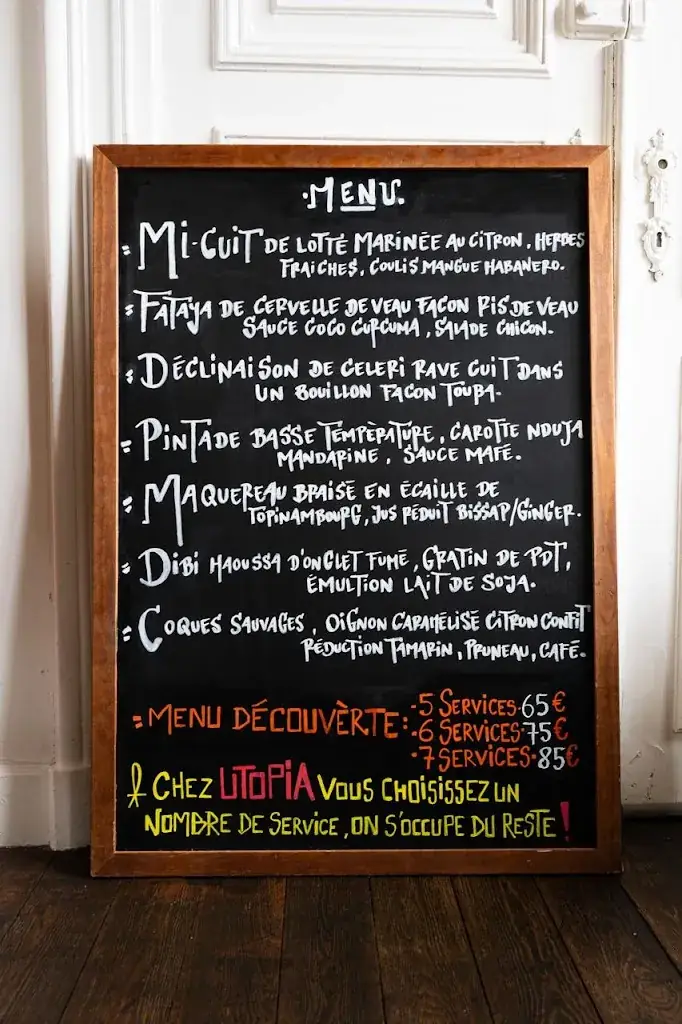 ·MENU.
= MI-CUIT DE LOTTE MARINÉE AU CITRON, HERBES
FRAICHES, COULIS MANGUE HABANERO.
= FATAYA DE CERVELLE DE VEAU FAÇON RIS DE VEAU
SAUCE COCO CURCUMA, SALADE CHICON.
= DÉCLINAISON DE CELERI RAVE CUIT DANS
UN BOUILLON FACON TOUBA.
= PINTADE BASSE TEMPÈRATURE, CAROTTE NDUJA
MANDARINE, SAUCE MAFÉ.
= MAQUEREAU BRAISE EN ÉCAILLE DE
TOPINAMBOURG, JUS RÉDUIT BISSAP/GINGER.
= DIBI HAOUSSA D'ONGLET FUMÉ, GRATIN DE PDT,
ÉMULTION LAIT DE SOJA.
= COQUES SAUVAGES, OIGNON CARAMÉLISÉ CITRON CONFIT
RÉDUCTION TAMARIN, PRUNEAU, CAFÉ.
= MENU DÉCOUVÈRTE: ·5 SERVICES·65€
·6 SERVICES·75€
·7 SERVICES·85€
CHEZ UTOPIA VOUS CHOISISSEZ UN
NOMBRE DE SERVICE, ON S'OCCUPE DU RESTE!